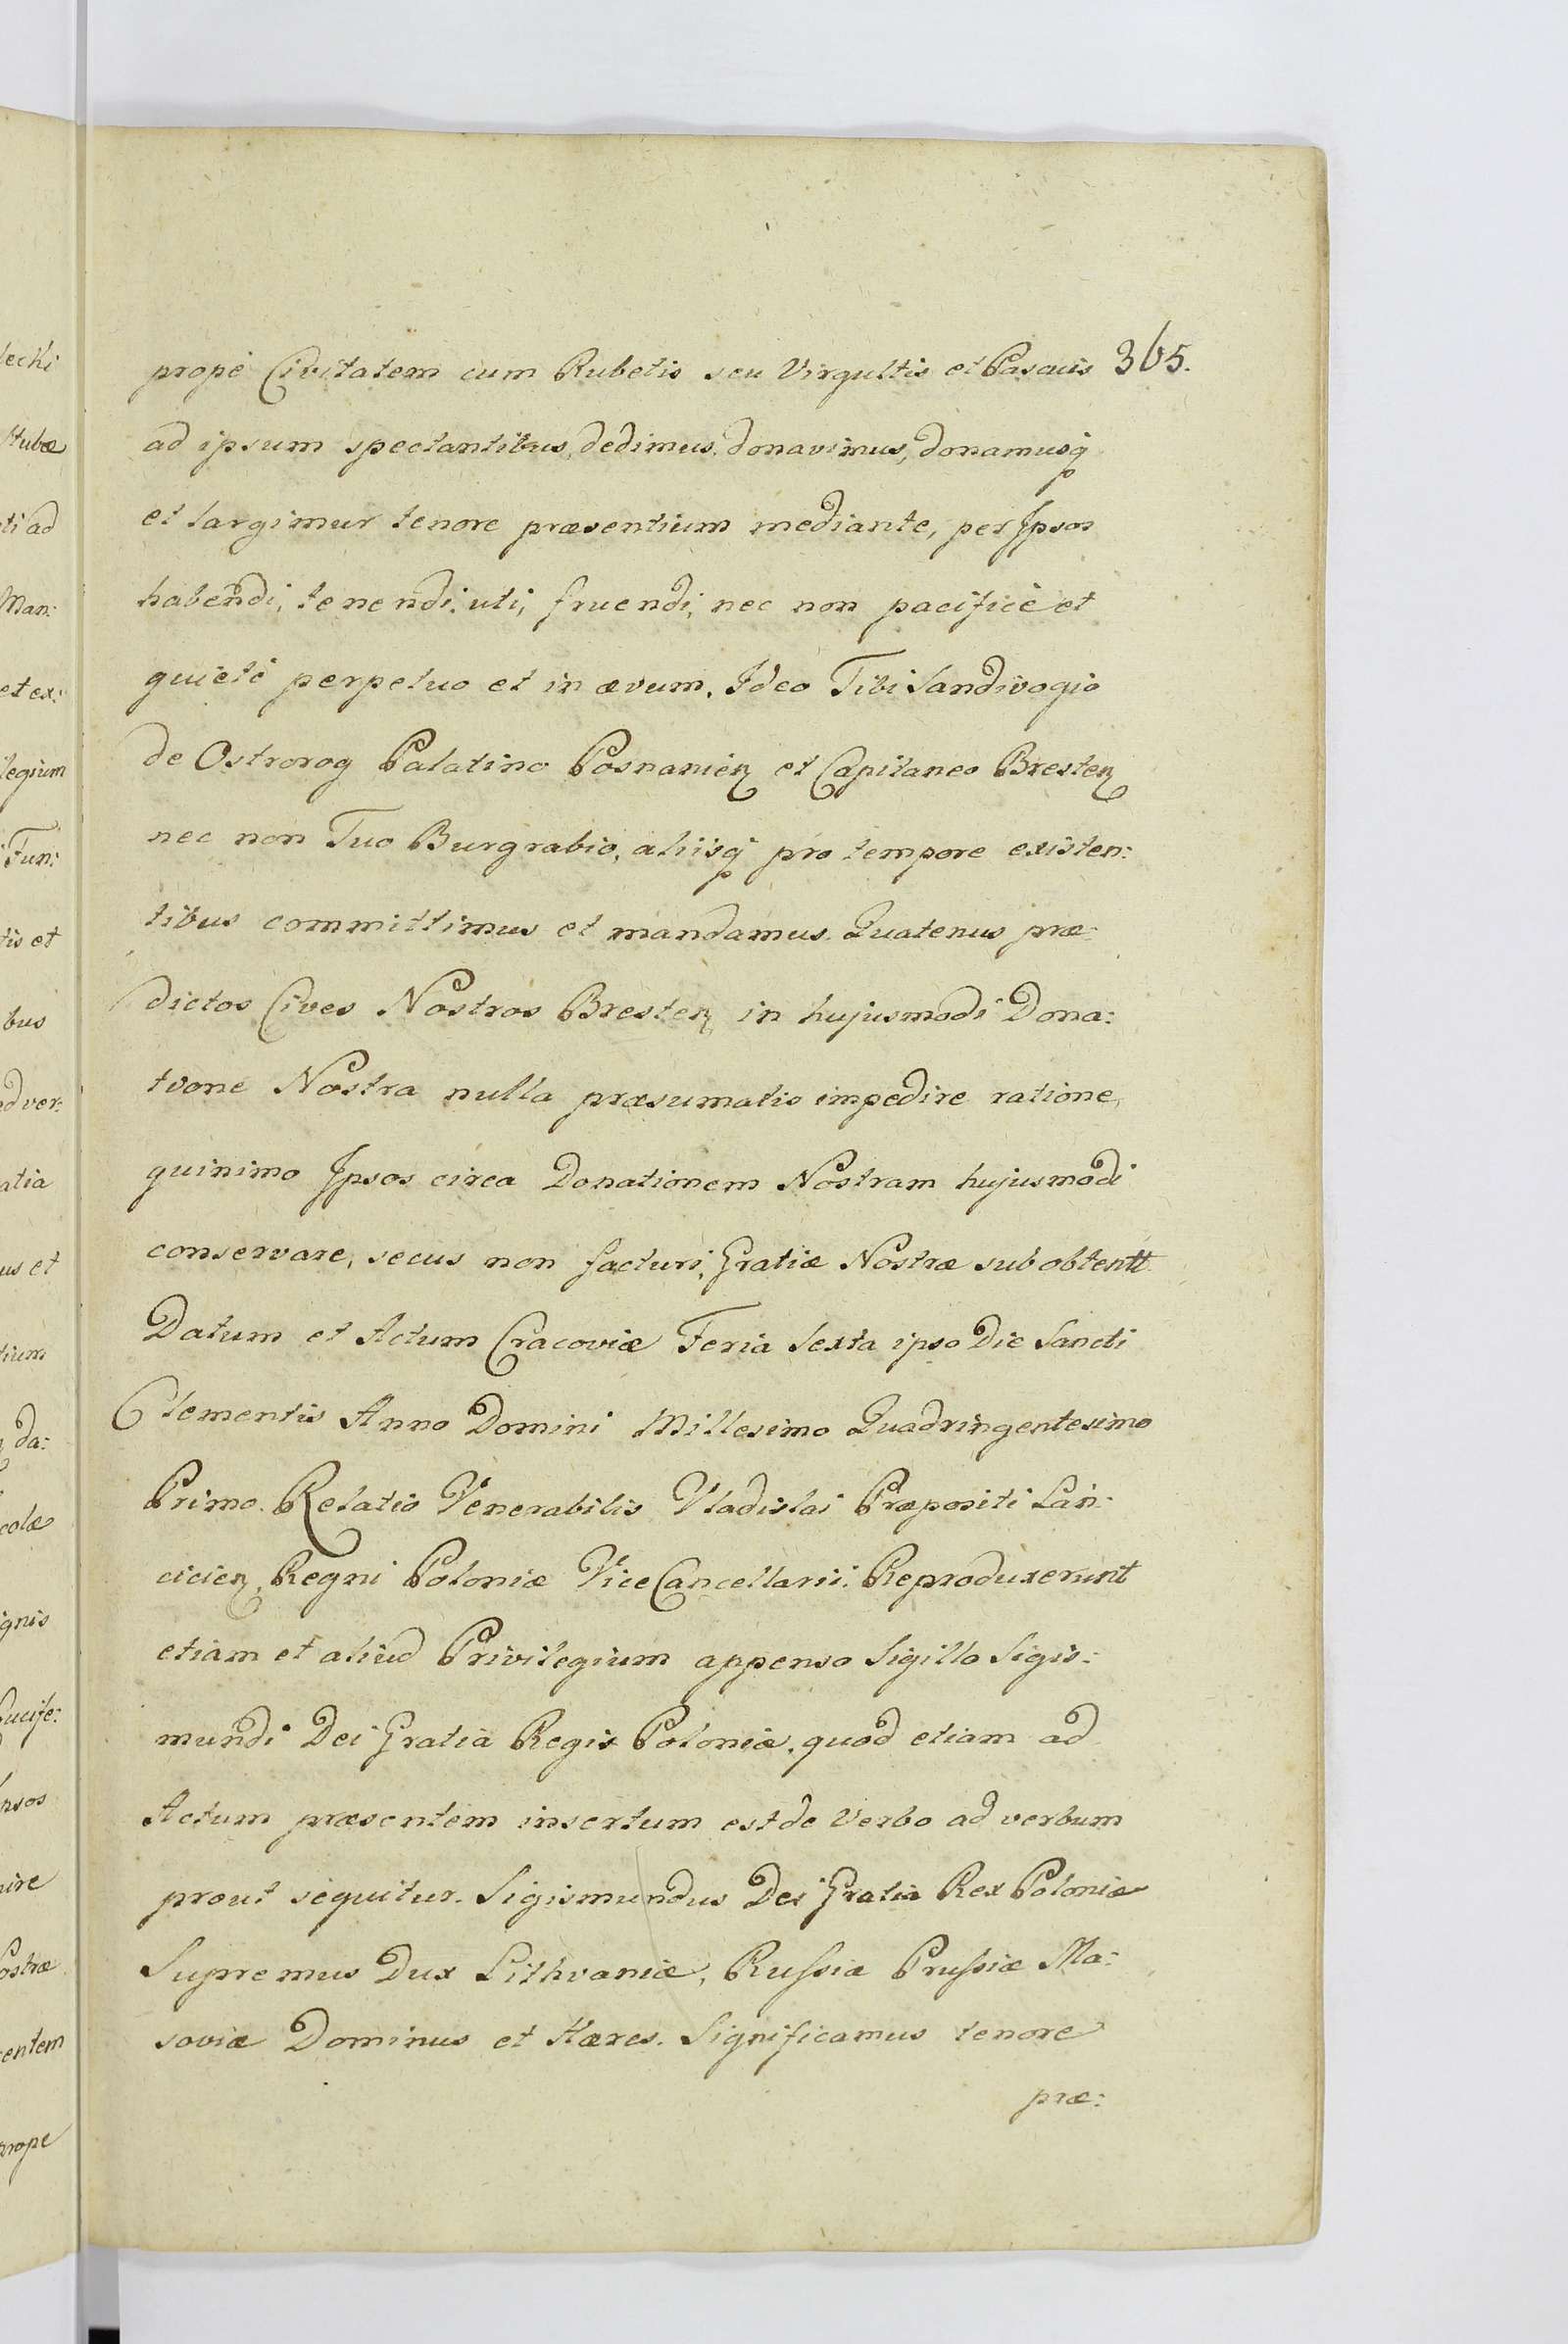 propè Civitatem cum Rubetis seu Virgultis et Pascuis 365.
ad ipsum spectantibus, dedimus, donavimus, donamusq
et largimur tenore præsentium mediante, per Ipsos
habendi, tenendi, uti, fruendi, nec non pacificè et
quietè perpetuo et in ævum. Ideo Tibi Sandivogio
de Ostrorog Palatino Posnanien et Capitaneo Bresten
nec non Tuo Burgrabio, aliisq pro tempore existen:
tibus committimus et mandamus. Quatenus præ:
dictos Cives Nostros Bresten in hujusmodi Dona:
tione Nostra nulla præsumatis impedire ratione,
quinimo Ipsos circa Donationem Nostram hujusmodi
conservare, secus non facturi, Gratiæ Nostræ sub obtentu
Datum et Actum Cracoviæ Feria Sexta ipso Die Sancti
Clementis Anno Domini Millesimo Quadringentesimo
Primo. Relatio Venerabilis Vladislai Præpositi Lan:
cicien, Regni Poloniæ ViceCancellarii. Reproduxerunt
etiam et aliud Privilegium appenso Sigillo Sigis:
mundi Dei Gratia Regis Poloniæ, quod etiam ad
Actum præsentem insertum est de Verbo ad verbum
prout sequitur. Sigismundus Dei Gratia Rex Poloniæ
Supremus Dux Lithvaniæ, Russiæ Prussiæ Ma:
soviæ Dominus et Hæres. Significamus tenore
præ: